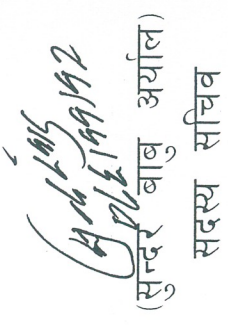 (सुन्दर बाबु अर्याल)
सदस्य सचिव